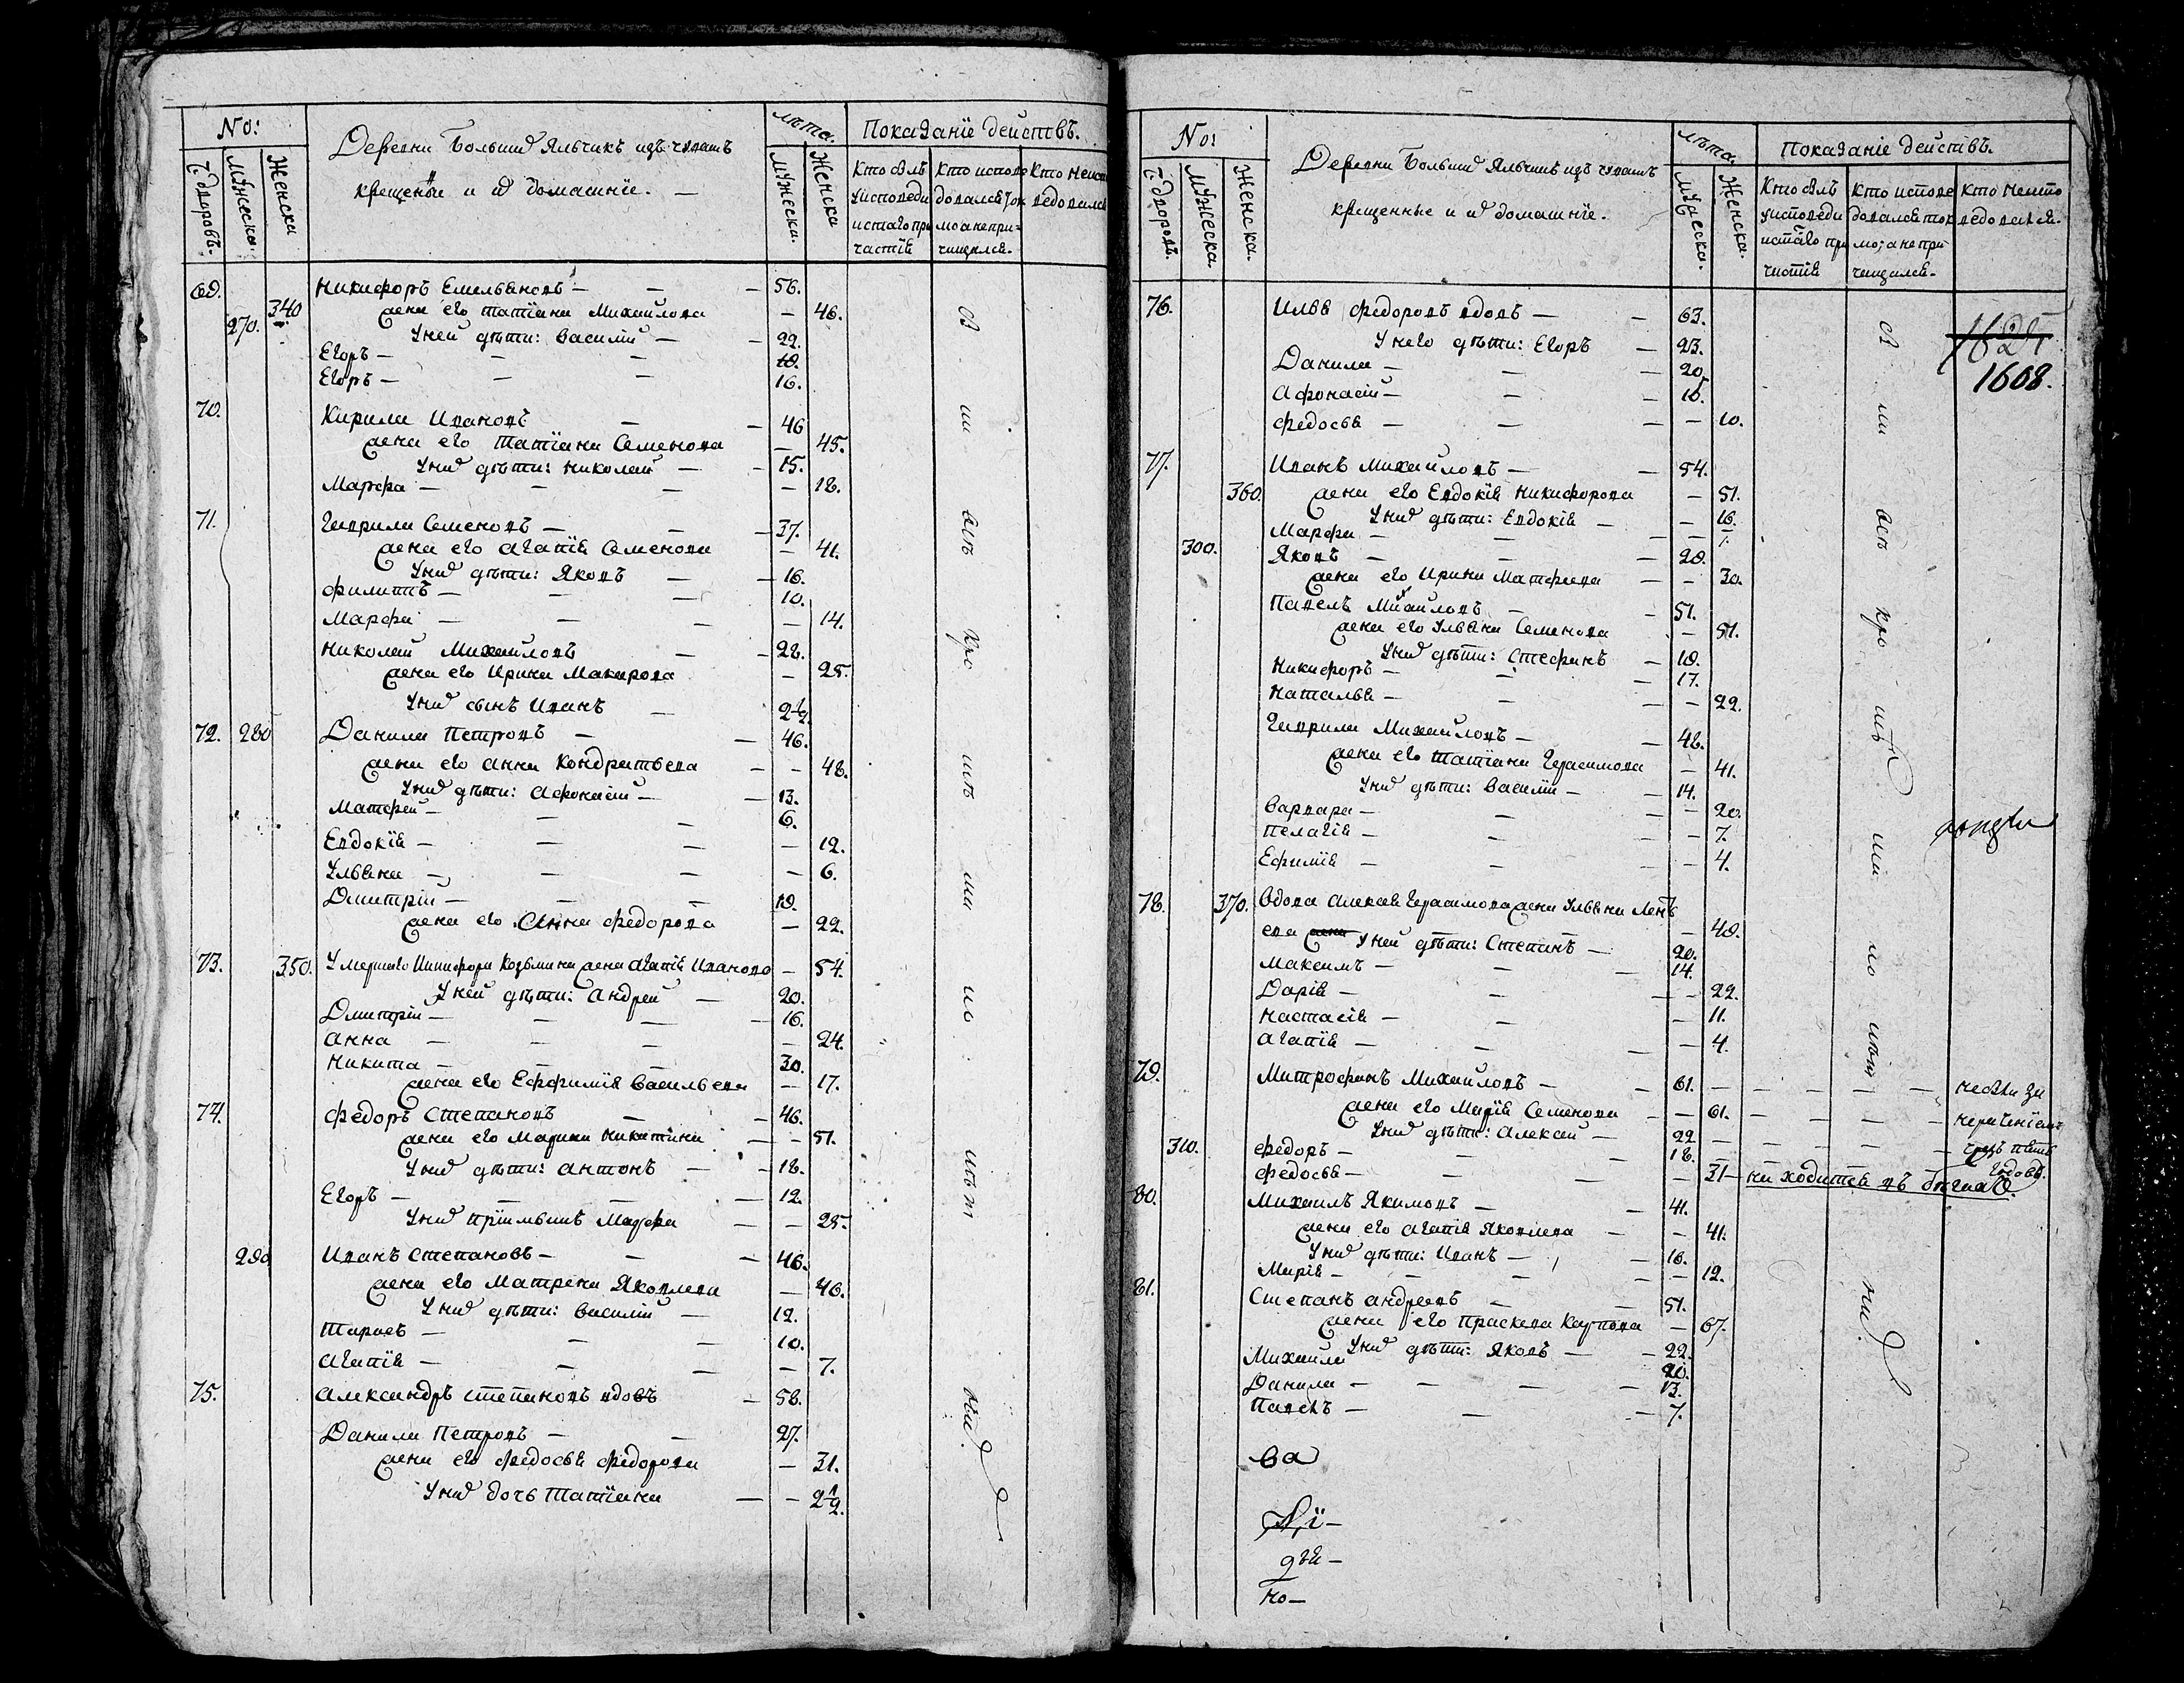 No:
Деревни Большид Яльчикъ изъ чувашъ
крещеные и ид домашнїе. —
лѣта.
Показанїе действъ.
дворовъ.
Мужеска.
Женска
Мужеска.
Женска
Кто былъ
у исповеди
и с̃таго при
частїя
Кто испове
довался ток
мо а не при=
чащался.
Кто не испо
ведовался
69. Никифоръ Емельяновъ — — — 56.
270. 340 жена его Татїана Михаилова — 46.
У ней дѣти: Василїй — — 22.
Егоръ — — — 19.
Егоръ — — — 16.
70. Кирила Ивановъ — — 46
жена его Татїана Семенова — 45.
У нид дѣти: Николай — — 15.
Марфа — — — — 18.
71. Гаврила Семеновъ — — — 37.
жена его Агапїя Семенова — 41.
У нид дѣти: Яковъ — — 16.
Филиппъ — — — 10.
Марфа — — — — 14.
Николай Михайловъ — — 28.
жена его Ирина Макарова — 25.
У нид сынъ Иванъ — 2½.
72. 280 Данила Петровъ — — 46.
жена его Анна Кондратьева — — 48.
У нид дѣти: Афонасїй — — 13.
Матфей — — — 6.
Евдокїя — — — — 12.
Ульяна — — — — 6.
Дмитрїй — — — 19.
жена его Анна Федорова — 22.
73. 350. Умершаго Никифора Козьмина жена Агапїя Иванова — 54.
У ней дѣти: Андрей — 20.
Дмитрїй — — — — 16.
Анна — — — — 24.
Никита — — — 30.
жена его Еффимїя Васильева — 17.
74. Федоръ Степановъ — — 46.
жена его Марина Никитина — — 51.
У нид дѣти: Антонъ — — 18.
Егоръ — — — — 12.
У нид прїимышъ Марфа — — 25.
290 Иванъ Степановъ — — — 46.
жена его Матрена Яковлева — 46.
У нид дѣти: Василїй — 12.
Тарасъ — — — 10.
Агапїя — — — — 7.
75. Александръ Степановъ вдовъ — 58.
Данила Петровъ — — 27.
жена его Федосья Федорова — 31.
У нид дочь Татїана — — 2½.
No:
Деревни Большид Яльчикъ изъ чувашъ
крещенные и ид домашнїе.
лѣта.
Показанїе действъ.
дворовъ.
Мужеска.
Женска.
Мужеска.
Женска.
Кто былъ
у исповеди
и с̃таго при
частїя
Кто испове
довался ток
мо; а не при
чащался.
Кто не испо
ведовался.
1608.
76. Илья Федоровъ вдовъ — — 63.
У него дѣти: Егоръ — 23.
Данила — — — 20.
Афонасїй — — — 16.
Федосья — — — — 10.
77. Иванъ Михайловъ — — 54.
360 жена его Евдокїя Никифорова — 51.
У нид дѣти: Евдокїя — — 16.
Марфа — — — — 7.
300. Яковъ — — — 29.
жена его Ирина Матфеева — — 30.
Павелъ Михайловъ — — 51.
жена его Ульяна Семенова — 51.
У нид дѣти: Стефанъ — 19.
Никифоръ — — — 17.
Наталья — — — — 22.
Гаврила Михайловъ — — 48.
жена его Татїана Герасимова — 41.
У нид дѣти: Василїй — — 14.
Варвара — — — — 20.
Пелагїя — — — — 7.
Ефимїя — — — — 4.
78. 370. Вдова Алексея Герасимова жена Ульяна Лень
ева — 49.
У ней дѣти: Степанъ — 20.
Максимъ — — — 14.
Дарїя — — — — 22.
Настасїя — — — 11.
Агапїя — — — — 4.
79. Митрофанъ Михайловъ — — 61. — — — — — не были за
жена его Марїя Семенова — — 61. — — — — нераченїемъ
У нид дѣти: Алексей — 22 — — — — — чрезъ пять
310. Федоръ — — 18. годовъ.
Федосья — — — — 31 — находится въ бегахъ.
80. Михаилъ Якимовъ — — 41.
жена его Агапїя Яковлева — — 41.
У нид дѣти: Иванъ — — 16.
Марїя — — — — — 12.
81. Степанъ Андреевъ — — 51.
жена его Праскева Карпова — 67.
У нид дѣти: Яковъ — — 22.
Михайла 20.
Данила — — — — 13.
Павелъ — — — 7.